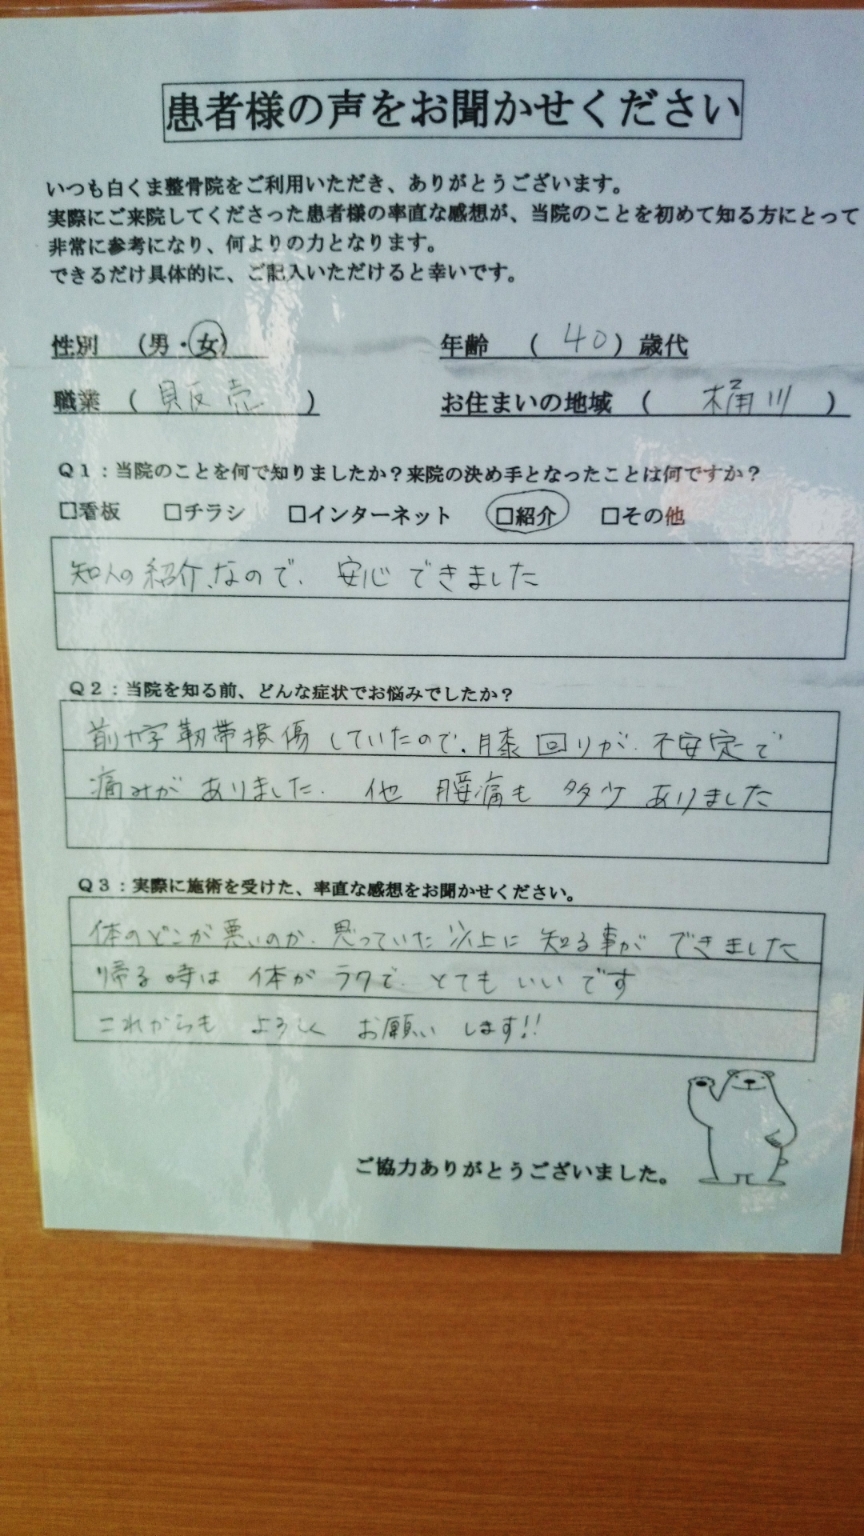 患者様の声をお聞かせください
いつも白くま整骨院をご利用いただき、ありがとうございます。
実際にご来院してくださった患者様の率直な感想が、当院のことを初めて知る方にとって
非常に参考になり、何よりの力となります。
できるだけ具体的に、ご記入いただけると幸いです。
性別 (男・女) 年齢 ( 40 ) 歳代
職業 ( 販売 ) お住まいの地域 ( 桶川 )
Q1:当院のことを何で知りましたか?来院の決め手となったことは何ですか?
□看板 □チラシ □インターネット □紹介 □その他
知人の紹介、なので、安心できました
Q2:当院を知る前、どんな症状でお悩みでしたか?
前十字靭帯損傷していたので、膝回りが、不安定で
痛みがありました。他 腰痛も多少ありました
Q3:実際に施術を受けた、率直な感想をお聞かせください。
体のどこが悪いのか、思っていた以上に知る事ができました
帰る時は体がラクで、とてもいいです
これからもよろしくお願いします!!
ご協力ありがとうございました。